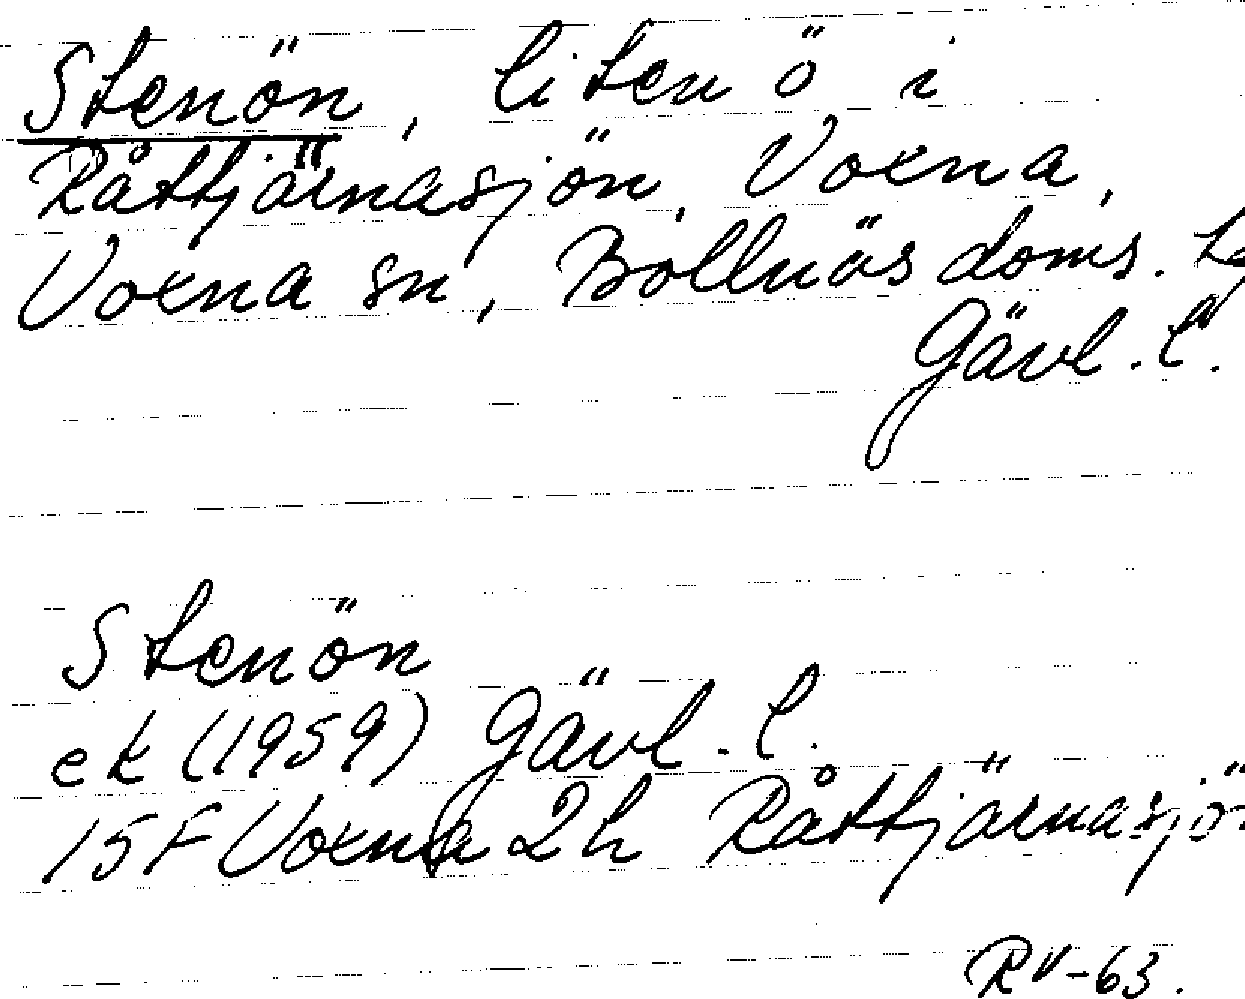 Stenön, liten ö i
Råttjärnasjön, Voxna,
Voxna sn, Bollnäs doms.
Gävl. l.
Stenön
ek (1959) Gävl. l.
15F Voxna 2h Råttjärnasjö
RV-63.